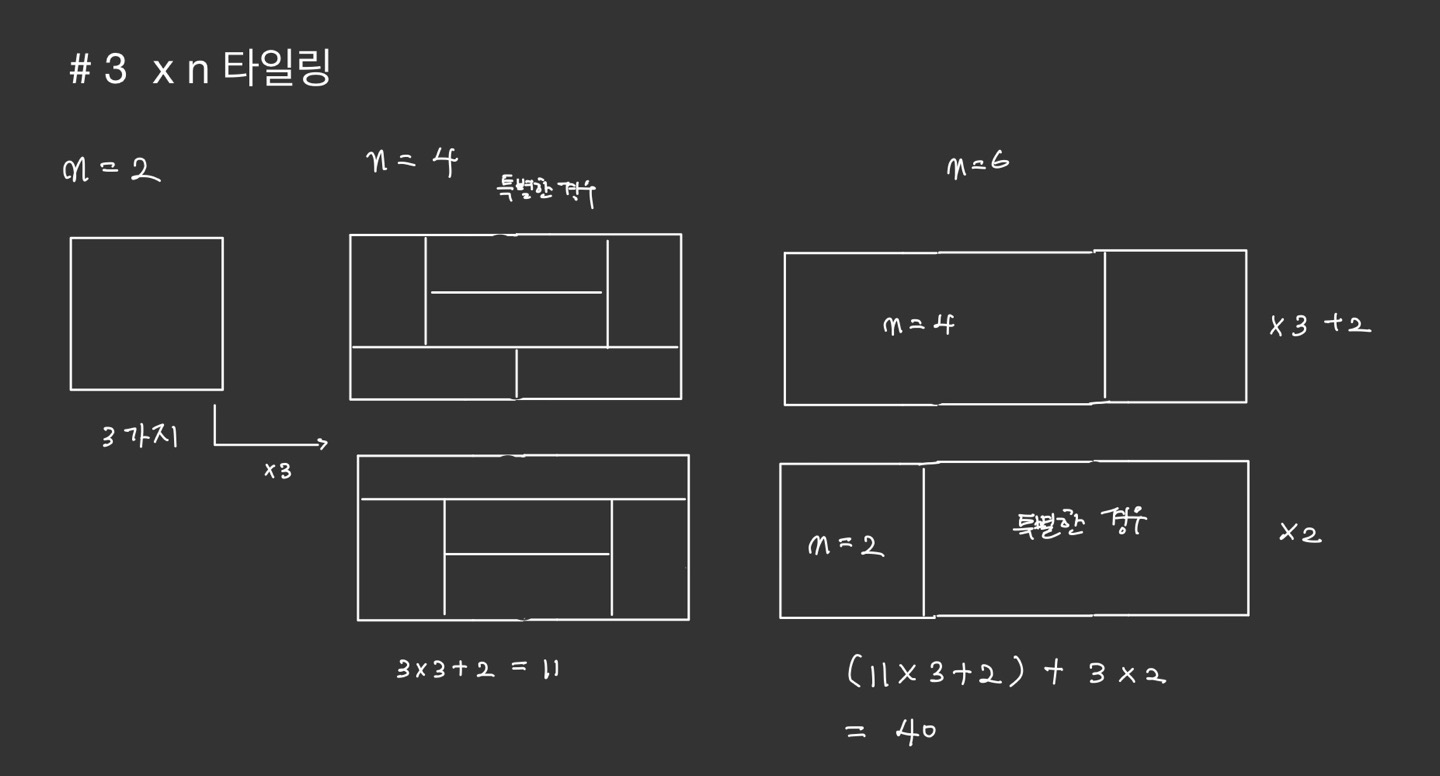 # 3 x n 타일링
n = 2
3 가지
x3
n = 4
특별한 경우
3x3+2 = 11
n=6
n=4
x3 +2
n=2
특별한 경우
x2
(11x3+2) + 3x2
= 40